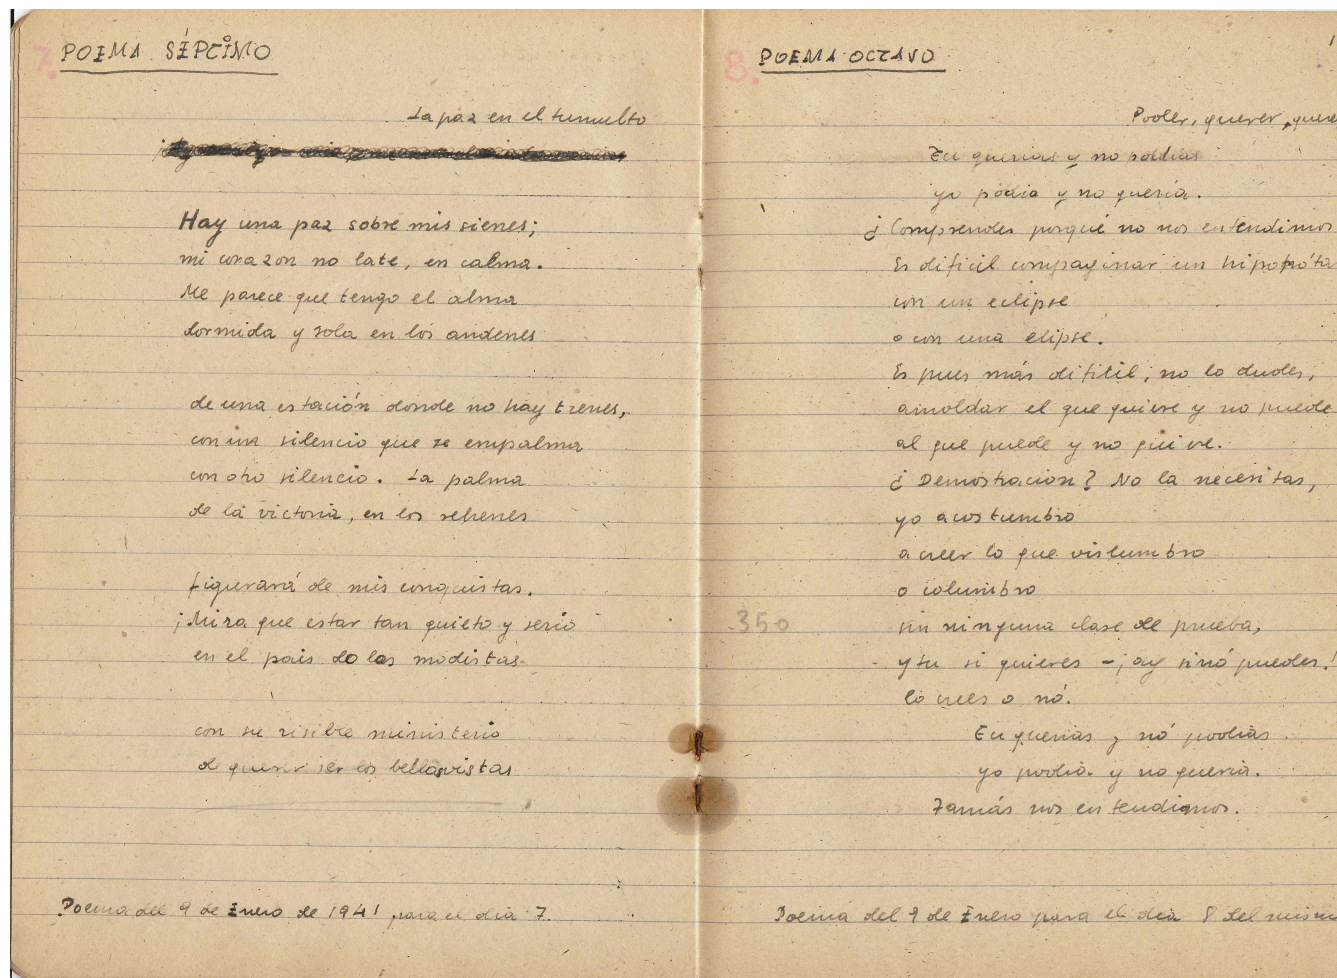 7. POEMA SÉPTIMO
La paz en el tumulto
Hay una paz sobre mis sienes;
mi corazon no late, en calma.
Me parece que tengo el alma
dormida y sola en los andenes
de una estación donde no hay trenes,
con un silencio que se empalma
con otro silencio. La palma
de la victoria, en los rehenes
figurará de mis conquistas.
¡Mira que estar tan quieto y serio
en el pais de las modistas
con su risible ministerio
de querer ser los bellas vistas
Poema del 9 de Enero de 1941 para el dia 7.
8. POEMA OCTAVO
Poder, querer, quere
Tu querias y no podias
yo podia y no queria.
¿Comprendes porqué no nos entendimos
Es dificil compaginar un hipopóta
con un eclipse
o con una elipse.
Es pues más dificil, no lo dudes,
amoldar el que quiere y no puede
al que puede y no quiere.
¿Demostracion? No la necesitas,
yo acostumbro
a creer lo que vislumbro
o columbro
350
sin ninguna clase de prueba,
y tu si quieres -¡ay sinó puedes!
lo crees o nó.
Tu querias y nó podias
yo podia y no queria.
Jamás nos entendimos.
Poema del 9 de Enero para el dia 8 del mism